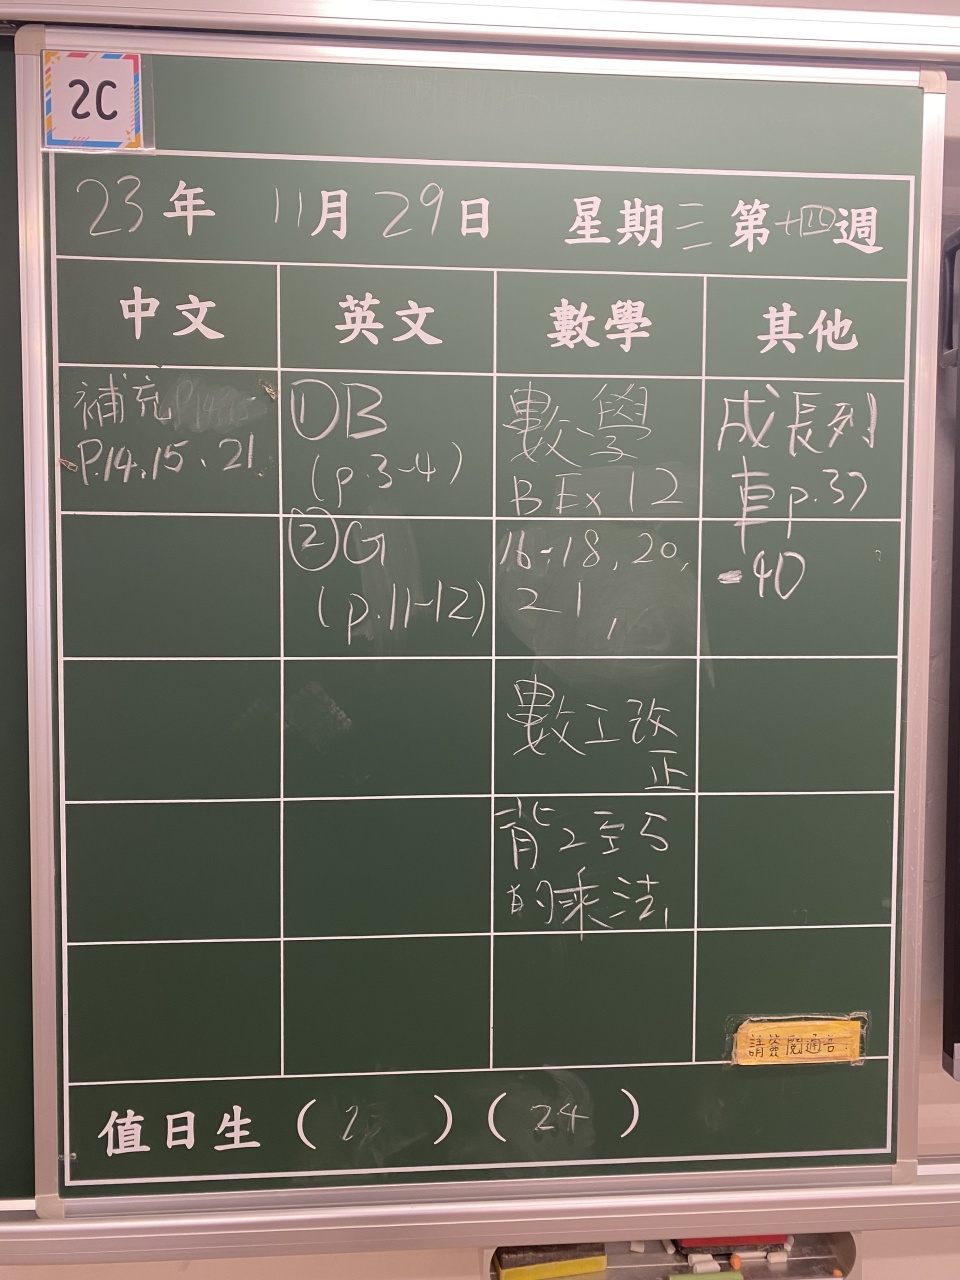 2C
23年 11月29日 星期三 第十四週
中文 英文 數學 其他
補充 P.14.15
P.14.15、21.
①B
(p.3-4)
②G
(p.11-12)
數學
B Ex 12
16-18, 20,
21,
數工改
正
背2至5
的乘法,
成長列
車p.37
-40
請簽閱通告.
值日生( )( 24 )